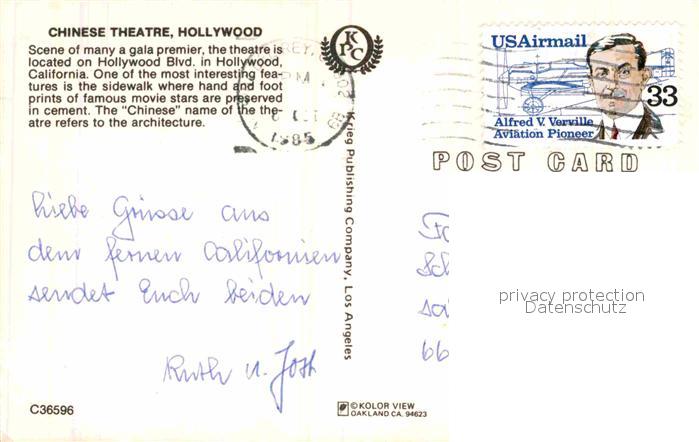 CHINESE THEATRE, HOLLYWOOD
Scene of many a gala premier, the theatre is
located on Hollywood Blvd. in Hollywood,
California. One of the most interesting fea-
tures is the sidewalk where hand and foot
prints of famous movie stars are preserved
in cement. The "Chinese" name of the the-
atre refers to the architecture.
KPC
PM
1985
USAirmail
33
Alfred V. Verville
Aviation Pioneer
POST CARD
Krieg Publishing Company, Los Angeles
Liebe Grüsse aus
dem fernen Californien
sendet Euch beiden
Ruth u. Jost
66
privacy protection
Datenschutz
C36596
© KOLOR VIEW
OAKLAND CA. 94623